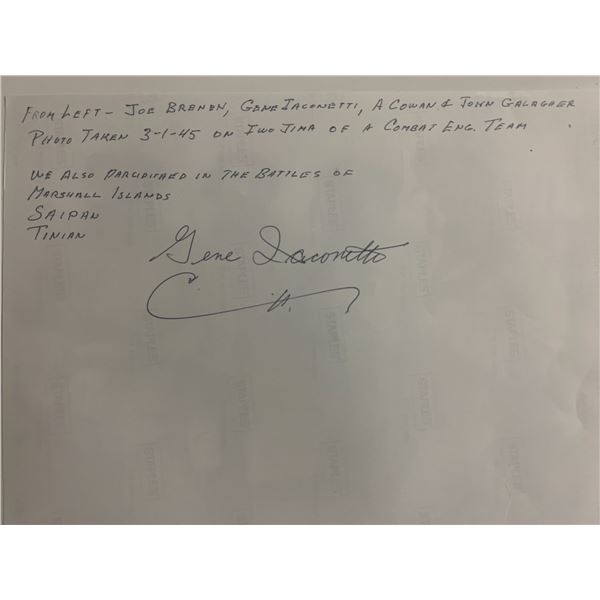 From Left - Joe Brenen, Gene Iaconetti, A Cowan & John Galagher
Photo Taken 3-1-45 on Iwo Jima of a Combat Eng. Team
We Also Parcipitaed in the Battles of
Marshall Islands
Saipan
Tinian
Gene Iaconetti